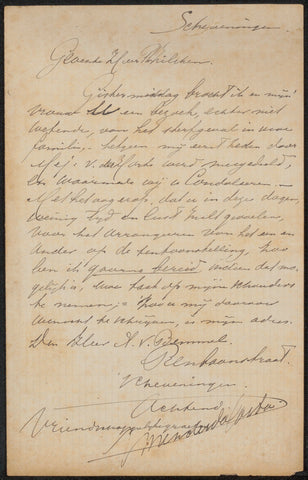 Scheveningen
Geachte Heer
Gister middag bracht ik en mijn
vrouw een bezoek, echter niet
wetende, van het sterfgeval in uwe
familie, hetgeen mij eerst heden door
Mej: v. de werd medegedeeld,
en waarmede wij u Condoleeren. –
Met het oog erop, dat u in deze dagen,
weinig tijd en lust zult gevoelen,
voor het arrangeeren van het een en
ander op de tentoonstelling, zoo
ben ik gaarne bereid, indien dat mo-
gelijk is, uwe taak op mijn schouders
te nemen, – zoo u mij daarover
wenscht te schrijven, is mijn adres.
Den Heer A. v. Bemmel.
Renbaanstraat.
Scheveningen.
Achtend
Mendes da Costa